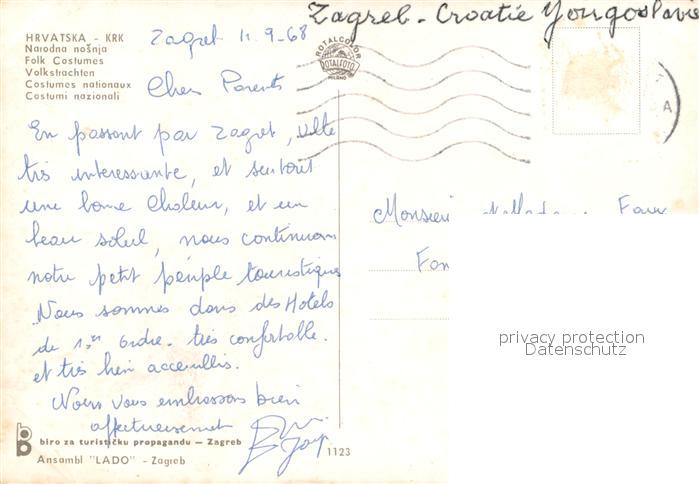 Zagreb - Croatie Yougoslavie
HRVATSKA - KRK
Narodna nošnja
Folk Costumes
Volkstrachten
Costumes nationaux
Costumi nazionali
Zagreb 11-9-68
ROTALCOLOR
ROTALFOTO
MILANO
A
Chers Parents
En passant par Zagreb, ville
très interessante, et surtout
une bonne chaleur, et un
beau soleil, nous continuons
notre petit périple touristique
Nous sommes dans des Hotels
de 1er ordre. très confortable.
et très bien accueillis.
Nous vous embrassons bien
affectueusement
Monsieur
privacy protection
Datenschutz
biro za turističku propagandu — Zagreb
Ansambl "LADO" - Zagreb
1123